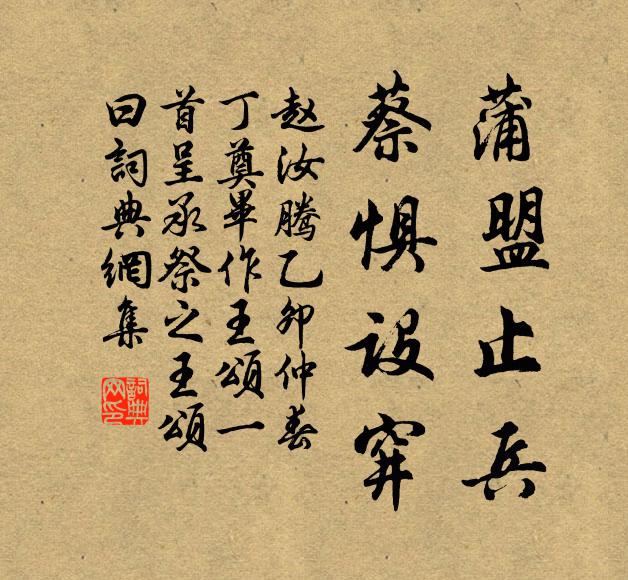 蒲盟止兵
蔡惧设穽
赵汝腾乙卯仲春
丁奠畢作王頌一
首呈承祭之王頌
曰詞典網集
詞典网印